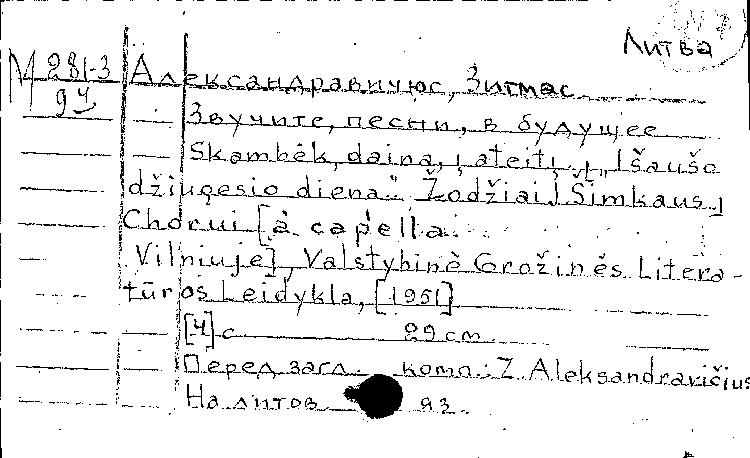 N 7
Литва
М 281-3 Александравичюс, Зитмас
94
Звучите, песни, в будущее
Skambėk, daina, į ateitį. „Išaušo
džiugesio diena." Žodžiai J Šimkaus
Chorui [a capella
Vilniuje], Valstybinė Grožinės Litera-
tūros Leidykla, [1951]
[4] с 29 см
Перед загл. комп.: Z. Aleksandravičius
На литов яз.